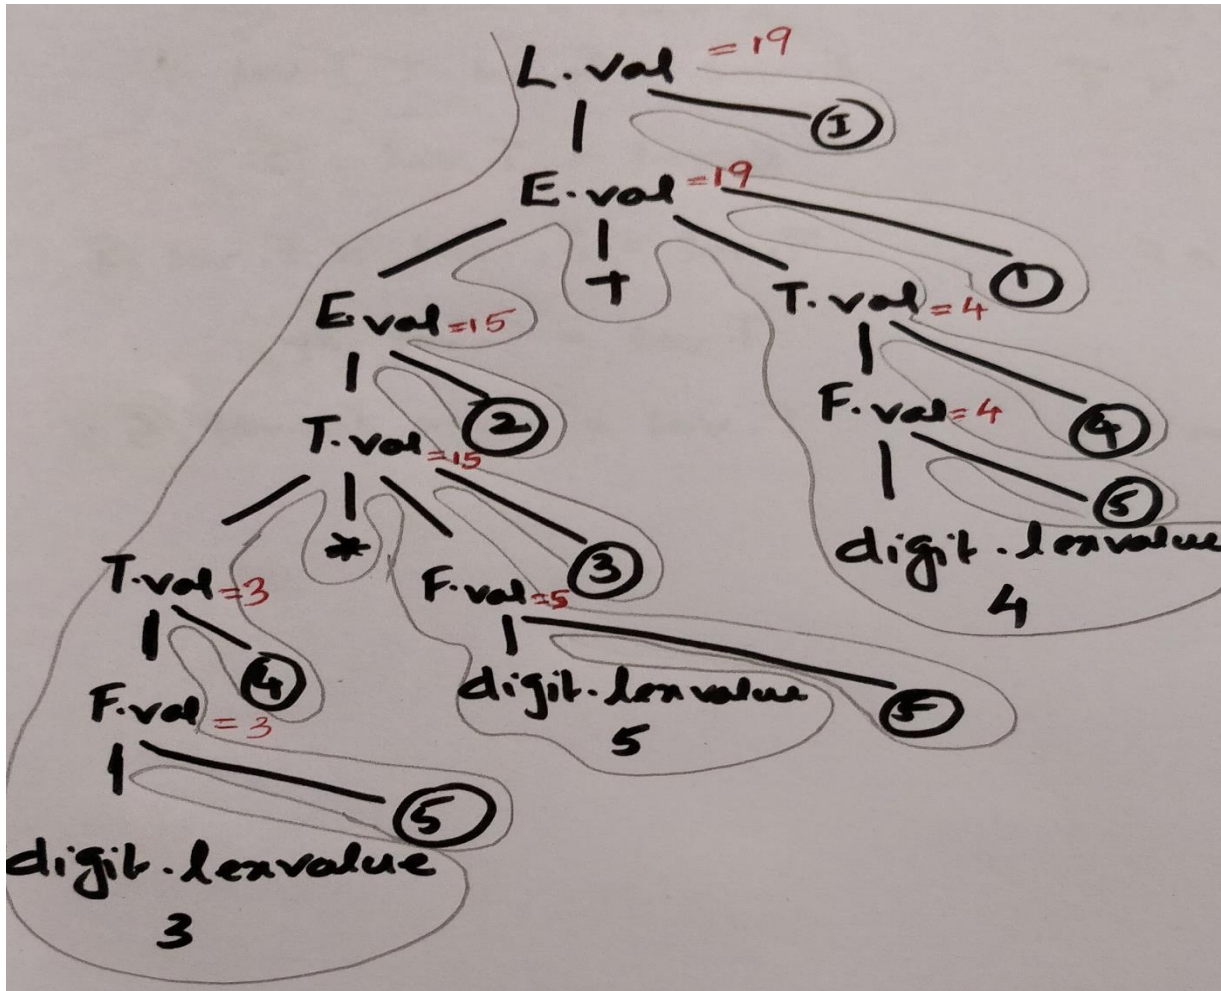 L.val = 19
I
E.val = 19
1
E.val = 15
+
T.val = 4
2
4
T.val = 15
F.val = 4
5
*
3
digit.lexvalue
4
T.val = 3
F.val = 5
4
digit.lexvalue
5
5
F.val = 3
5
digit.lexvalue
3